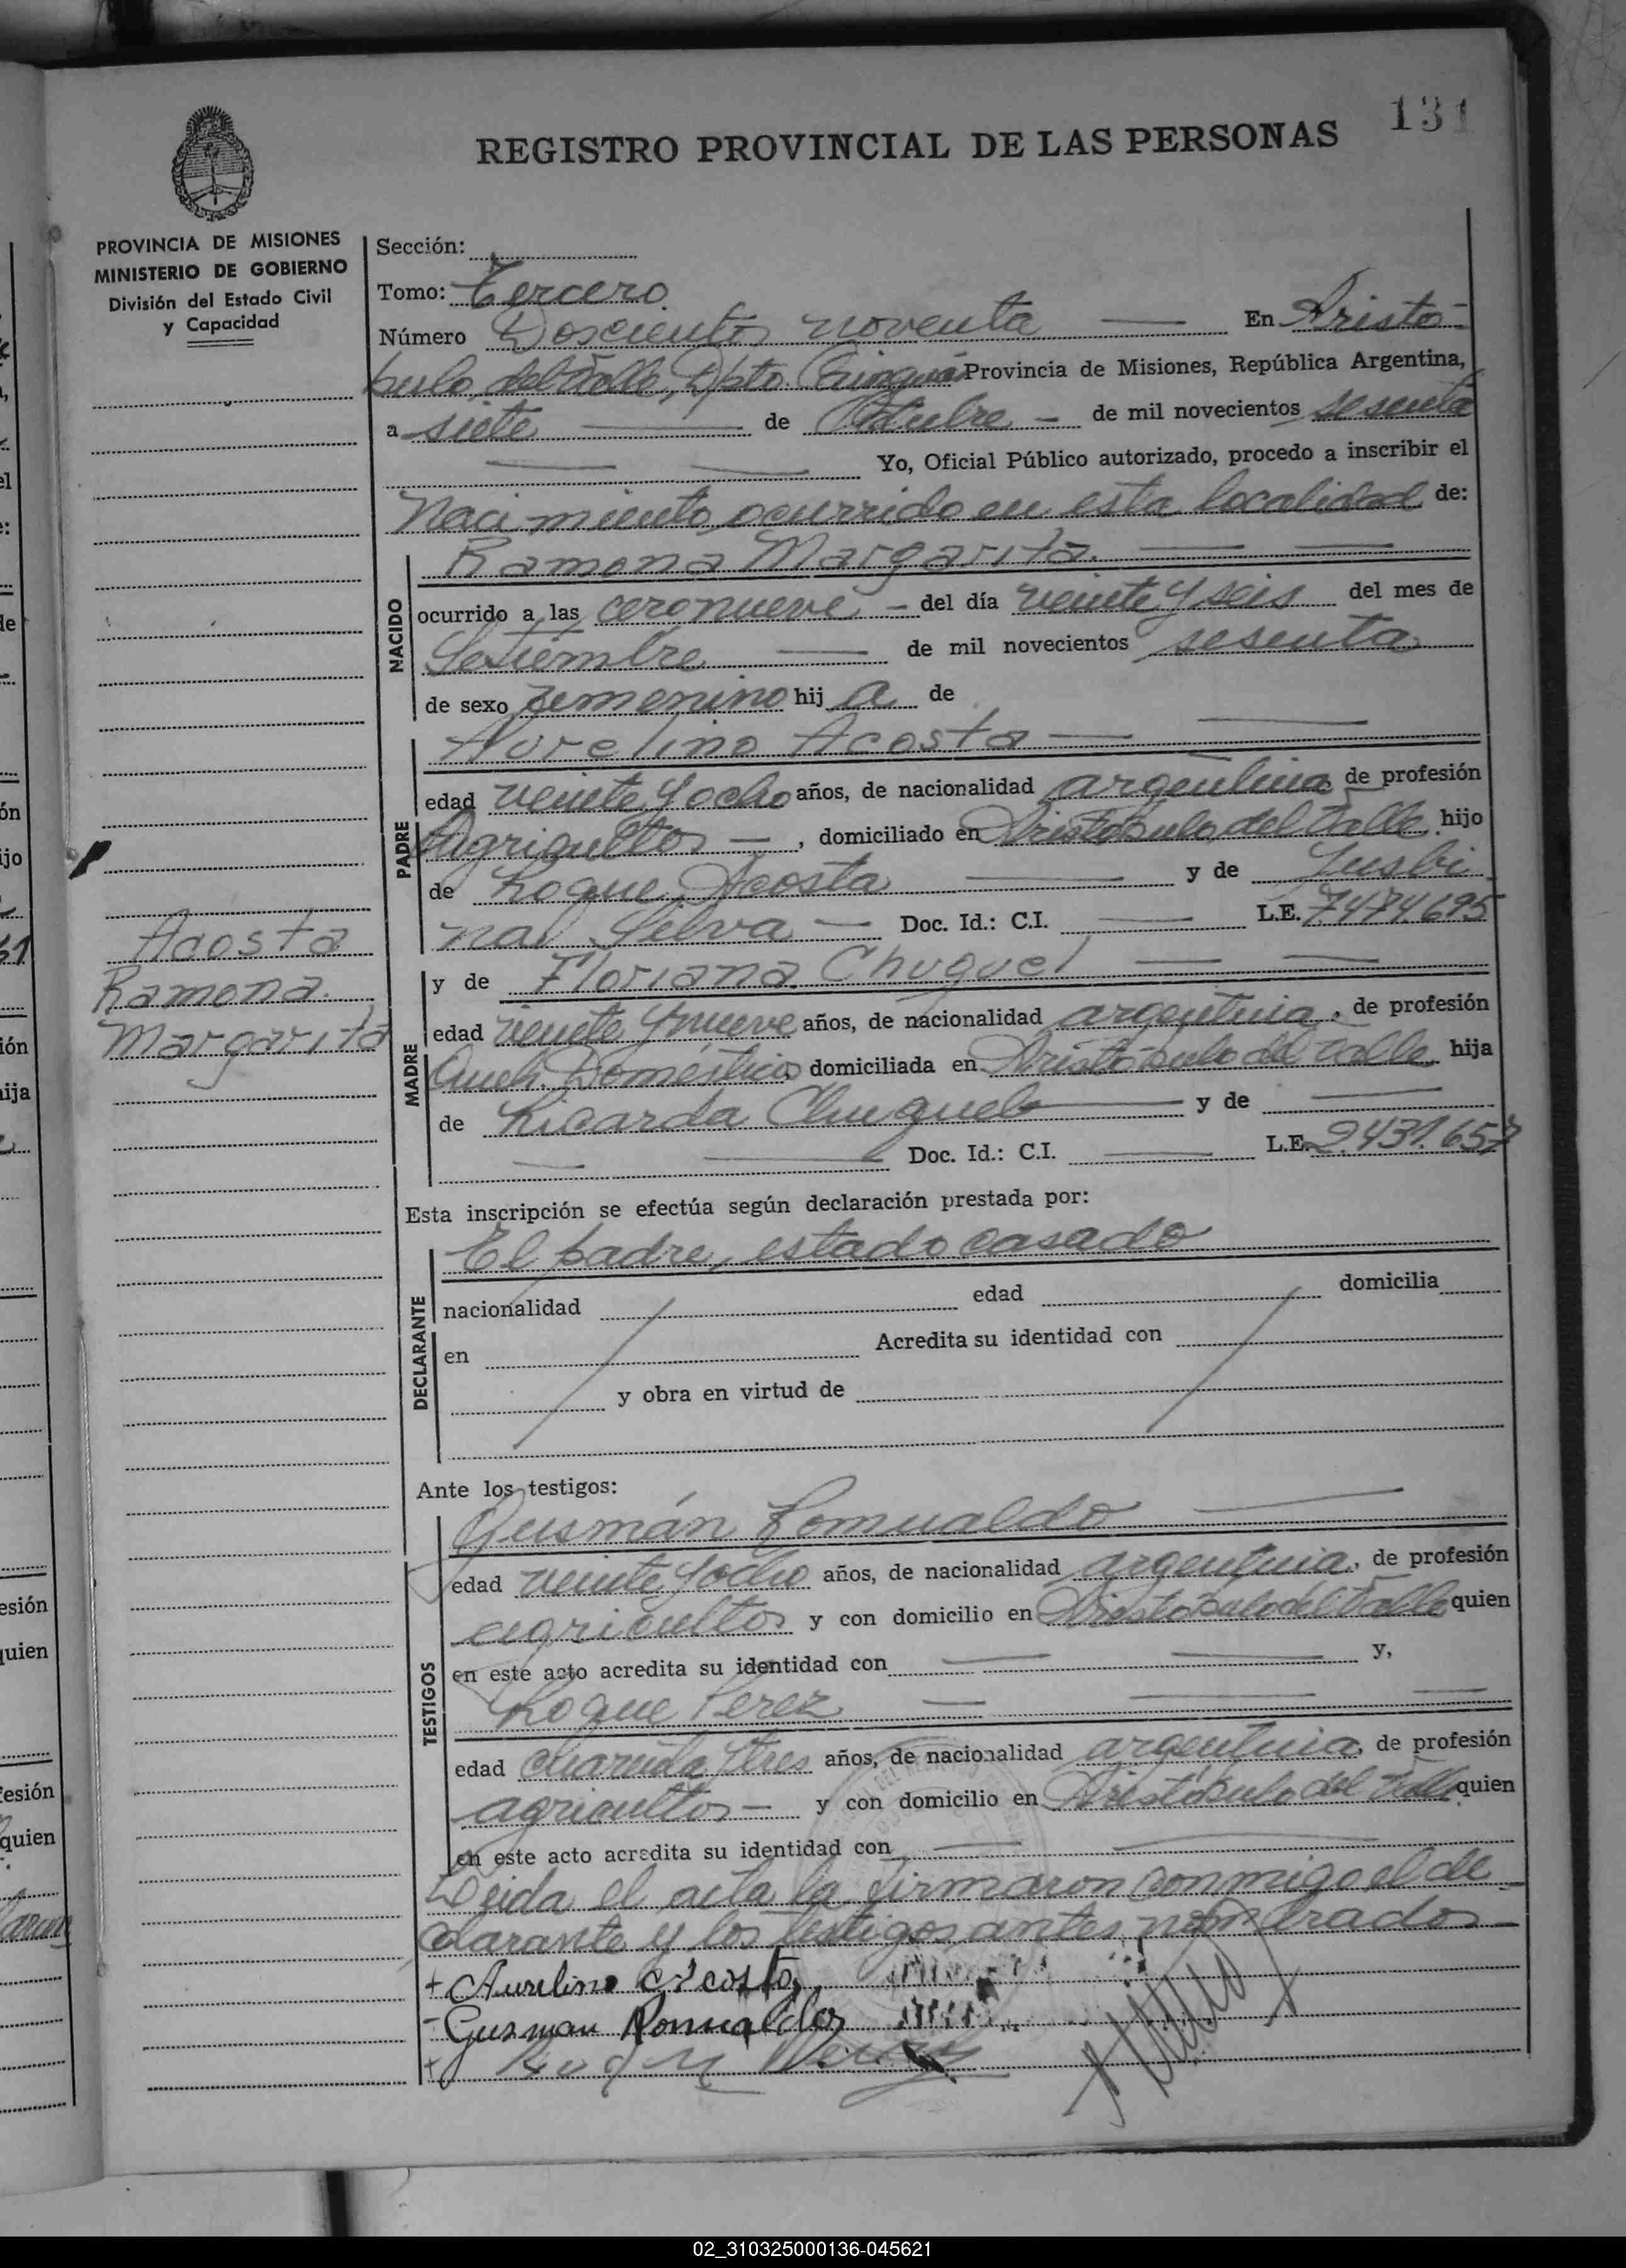 131
REGISTRO PROVINCIAL DE LAS PERSONAS
PROVINCIA DE MISIONES
MINISTERIO DE GOBIERNO
División del Estado Civil
y Capacidad
Sección:
Tomo: Tercero
Número Doscientos noventa En Aristó-
bulo del Valle, Dpto Provincia de Misiones, República Argentina,
a siete de Octubre de mil novecientos sesenta
Yo, Oficial Público autorizado, procedo a inscribir el
Nacimiento ocurrido en esta localidad de:
NACIDO
Ramona Margarita.
ocurrido a las cero nueve del día veinte y seis del mes de
Setiembre de mil novecientos sesenta
de sexo femenino hij a de
PADRE
Aurelino Acosta
edad veinte y ocho años, de nacionalidad argentina de profesión
Agricultor, domiciliado en Aristóbulo del Valle hijo
de Roque Acosta y de Lusbi
nal Silva Doc. Id.: C.I. L.E. 7.474.695
Acosta
Ramona.
Margarita
MADRE
y de Floriana Chuquel
edad veinte y nueve años, de nacionalidad argentina, de profesión
Queh. Domésticos domiciliada en Aristóbulo del Valle hija
de Ricarda Chuquel y de
Doc. Id.: C.I. L.E. 2.431.657
Esta inscripción se efectúa según declaración prestada por:
DECLARANTE
El padre, estado casado
nacionalidad edad domicilia
en Acredita su identidad con
y obra en virtud de
Ante los testigos:
TESTIGOS
Gusmán Romualdo
edad veinte y ocho años, de nacionalidad argentina, de profesión
agricultor y con domicilio en Aristóbulo del Valle quien
en este acto acredita su identidad con y,
Roque Perez
edad cuarenta y tres años, de nacionalidad argentina, de profesión
agricultor y con domicilio en Aristóbulo del Valle quien
en este acto acredita su identidad con
Leida el acta la firmaron conmigo el de-
clarante y los testigos antes nombrados
+ Aurelino Acosta
- Gusman Romualdo
+
02_310325000136-045621